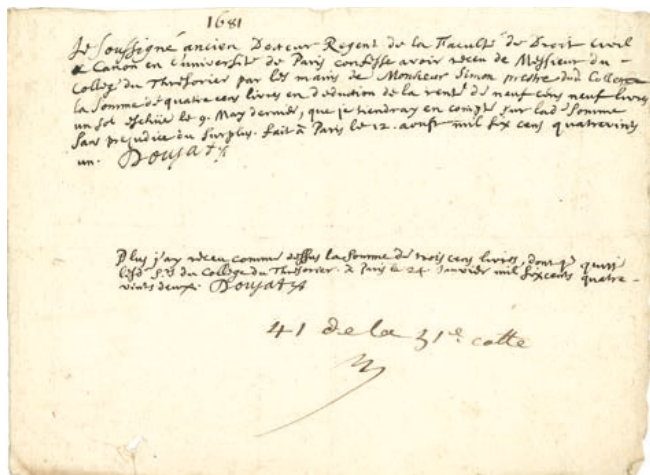 1681
Je Soussigné ancien Docteur Regent de la Faculté de Droit Civil
& Canon en l'université de Paris confesse avoir receu de Messieur du
College du Thresorier par les mains de Monsieur Simon prestre dud College
la somme de quatre cens livres en deduction de la rente de neuf cens neuf livres
un sol escheüe le 9. May dernier, que je tiendray en compte sur lad somme
sans prejudice du surplus. fait à Paris le 12. aoust mil six cens quatrevints
un. Doujat
Plus j'ay receu comme dessus la somme de trois cens livres, dont je quitte
lesd. Srs du College du Thresorier. à Paris le 24. Janvier mil six cents quatre-
vints deux. Doujat
41 de la 31e cotte